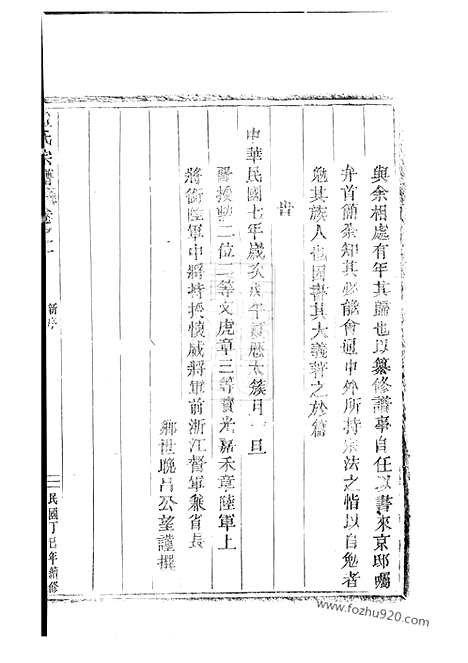 與余相處有年其歸也以纂修譜事自任以書來京邸囑
弁首簡余知其必能會通中外所持宗法之惜以自勉者
勉其族人也因書其大義弁之於篇
旹
中華民國七年歲次戊午夏曆太簇月
旦
晉授勳二位二等文虎章三等寶光嘉禾章陸軍上
將銜陸軍中將特授懷威將軍前浙江督軍兼省長
鄉世晚呂公望謹撰
氏宗譜
新序
民國丁巳年續修
www.fozhu920.com